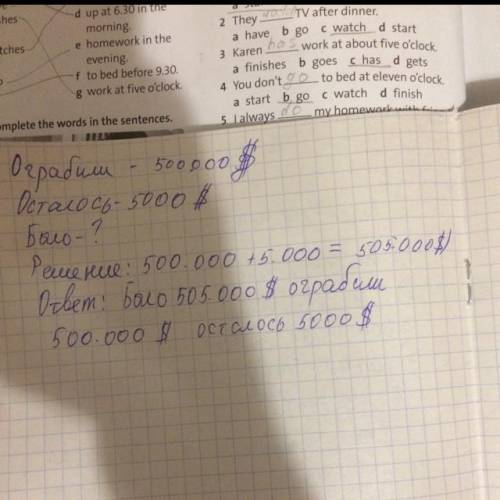 d up at 6.30 in the
morning.
e homework in the
evening.
f to bed before 9.30.
g work at five o'clock.
omplete the words in the sentences.
2 They watch TV after dinner.
a have b go c watch d start
3 Karen has work at about five o'clock.
a finishes b goes c has d gets
4 You don't go to bed at eleven o'clock.
a start b go c watch d finish
5 I always do my homework with
Ограбили - 500.000 $
Осталось - 5000 $
Было - ?
Решение: 500.000 + 5.000 = 505.000 $)
Ответ: Было 505.000 $ ограбили
500.000 $ осталось 5000 $